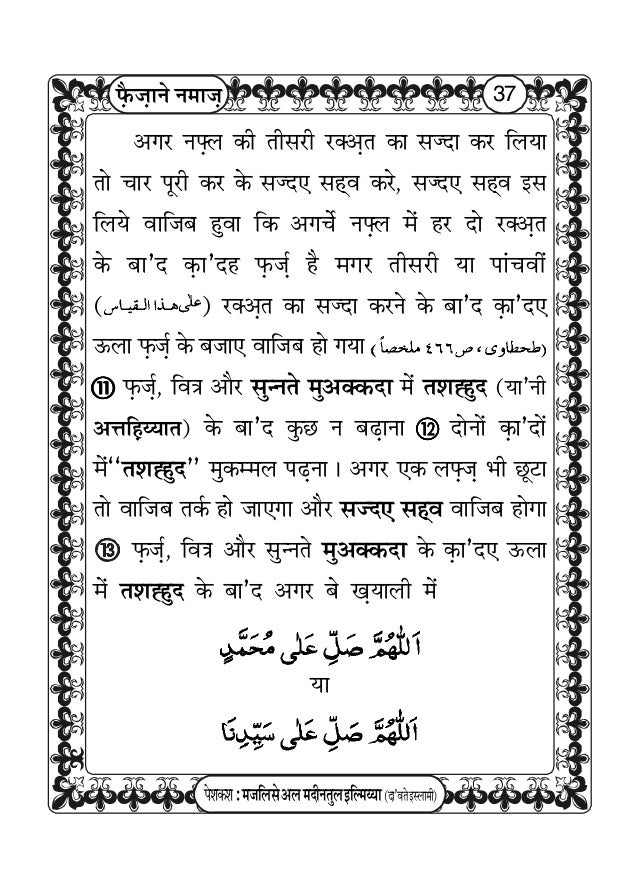 फ़ैज़ाने नमाज़
37
अगर नफ़्ल की तीसरी रक्अ़त का सज्दा कर लिया
तो चार पूरी कर के सज्दए सह्व करे, सज्दए सह्व इस
लिये वाजिब हुवा कि अगर्चे नफ़्ल में हर दो रक्अ़त
के बा’द क़ा’दह फ़र्ज़ है मगर तीसरी या पांचवीं
(علٰی ھذا القیاس) रक्अ़त का सज्दा करने के बा’द क़ा’दए
ऊला फ़र्ज़ के बजाए वाजिब हो गया (طحطاوی، ص٤٦٦ ملخصاً)
⑪ फ़र्ज़, वित्र और सुन्नते मुअक्कदा में तशह्हुद (या’नी
अत्तहि़य्यात) के बा’द कुछ न बढ़ाना ⑫ दोनों क़ा’दों
में “तशह्हुद” मुकम्मल पढ़ना । अगर एक लफ़्ज़ भी छूटा
तो वाजिब तर्क हो जाएगा और सज्दए सह्व वाजिब होगा
⑬ फ़र्ज़, वित्र और सुन्नते मुअक्कदा के क़ा’दए ऊला
में तशह्हुद के बा’द अगर बे ख़याली में
اَللّٰهُمَّ صَلِّ عَلٰى مُحَمَّدٍ
या
اَللّٰهُمَّ صَلِّ عَلٰى سَيِّدِنَا
पेशकश : मजलिसे अल मदीनतुल इल्मिय्या (दा’वते इस्लामी)